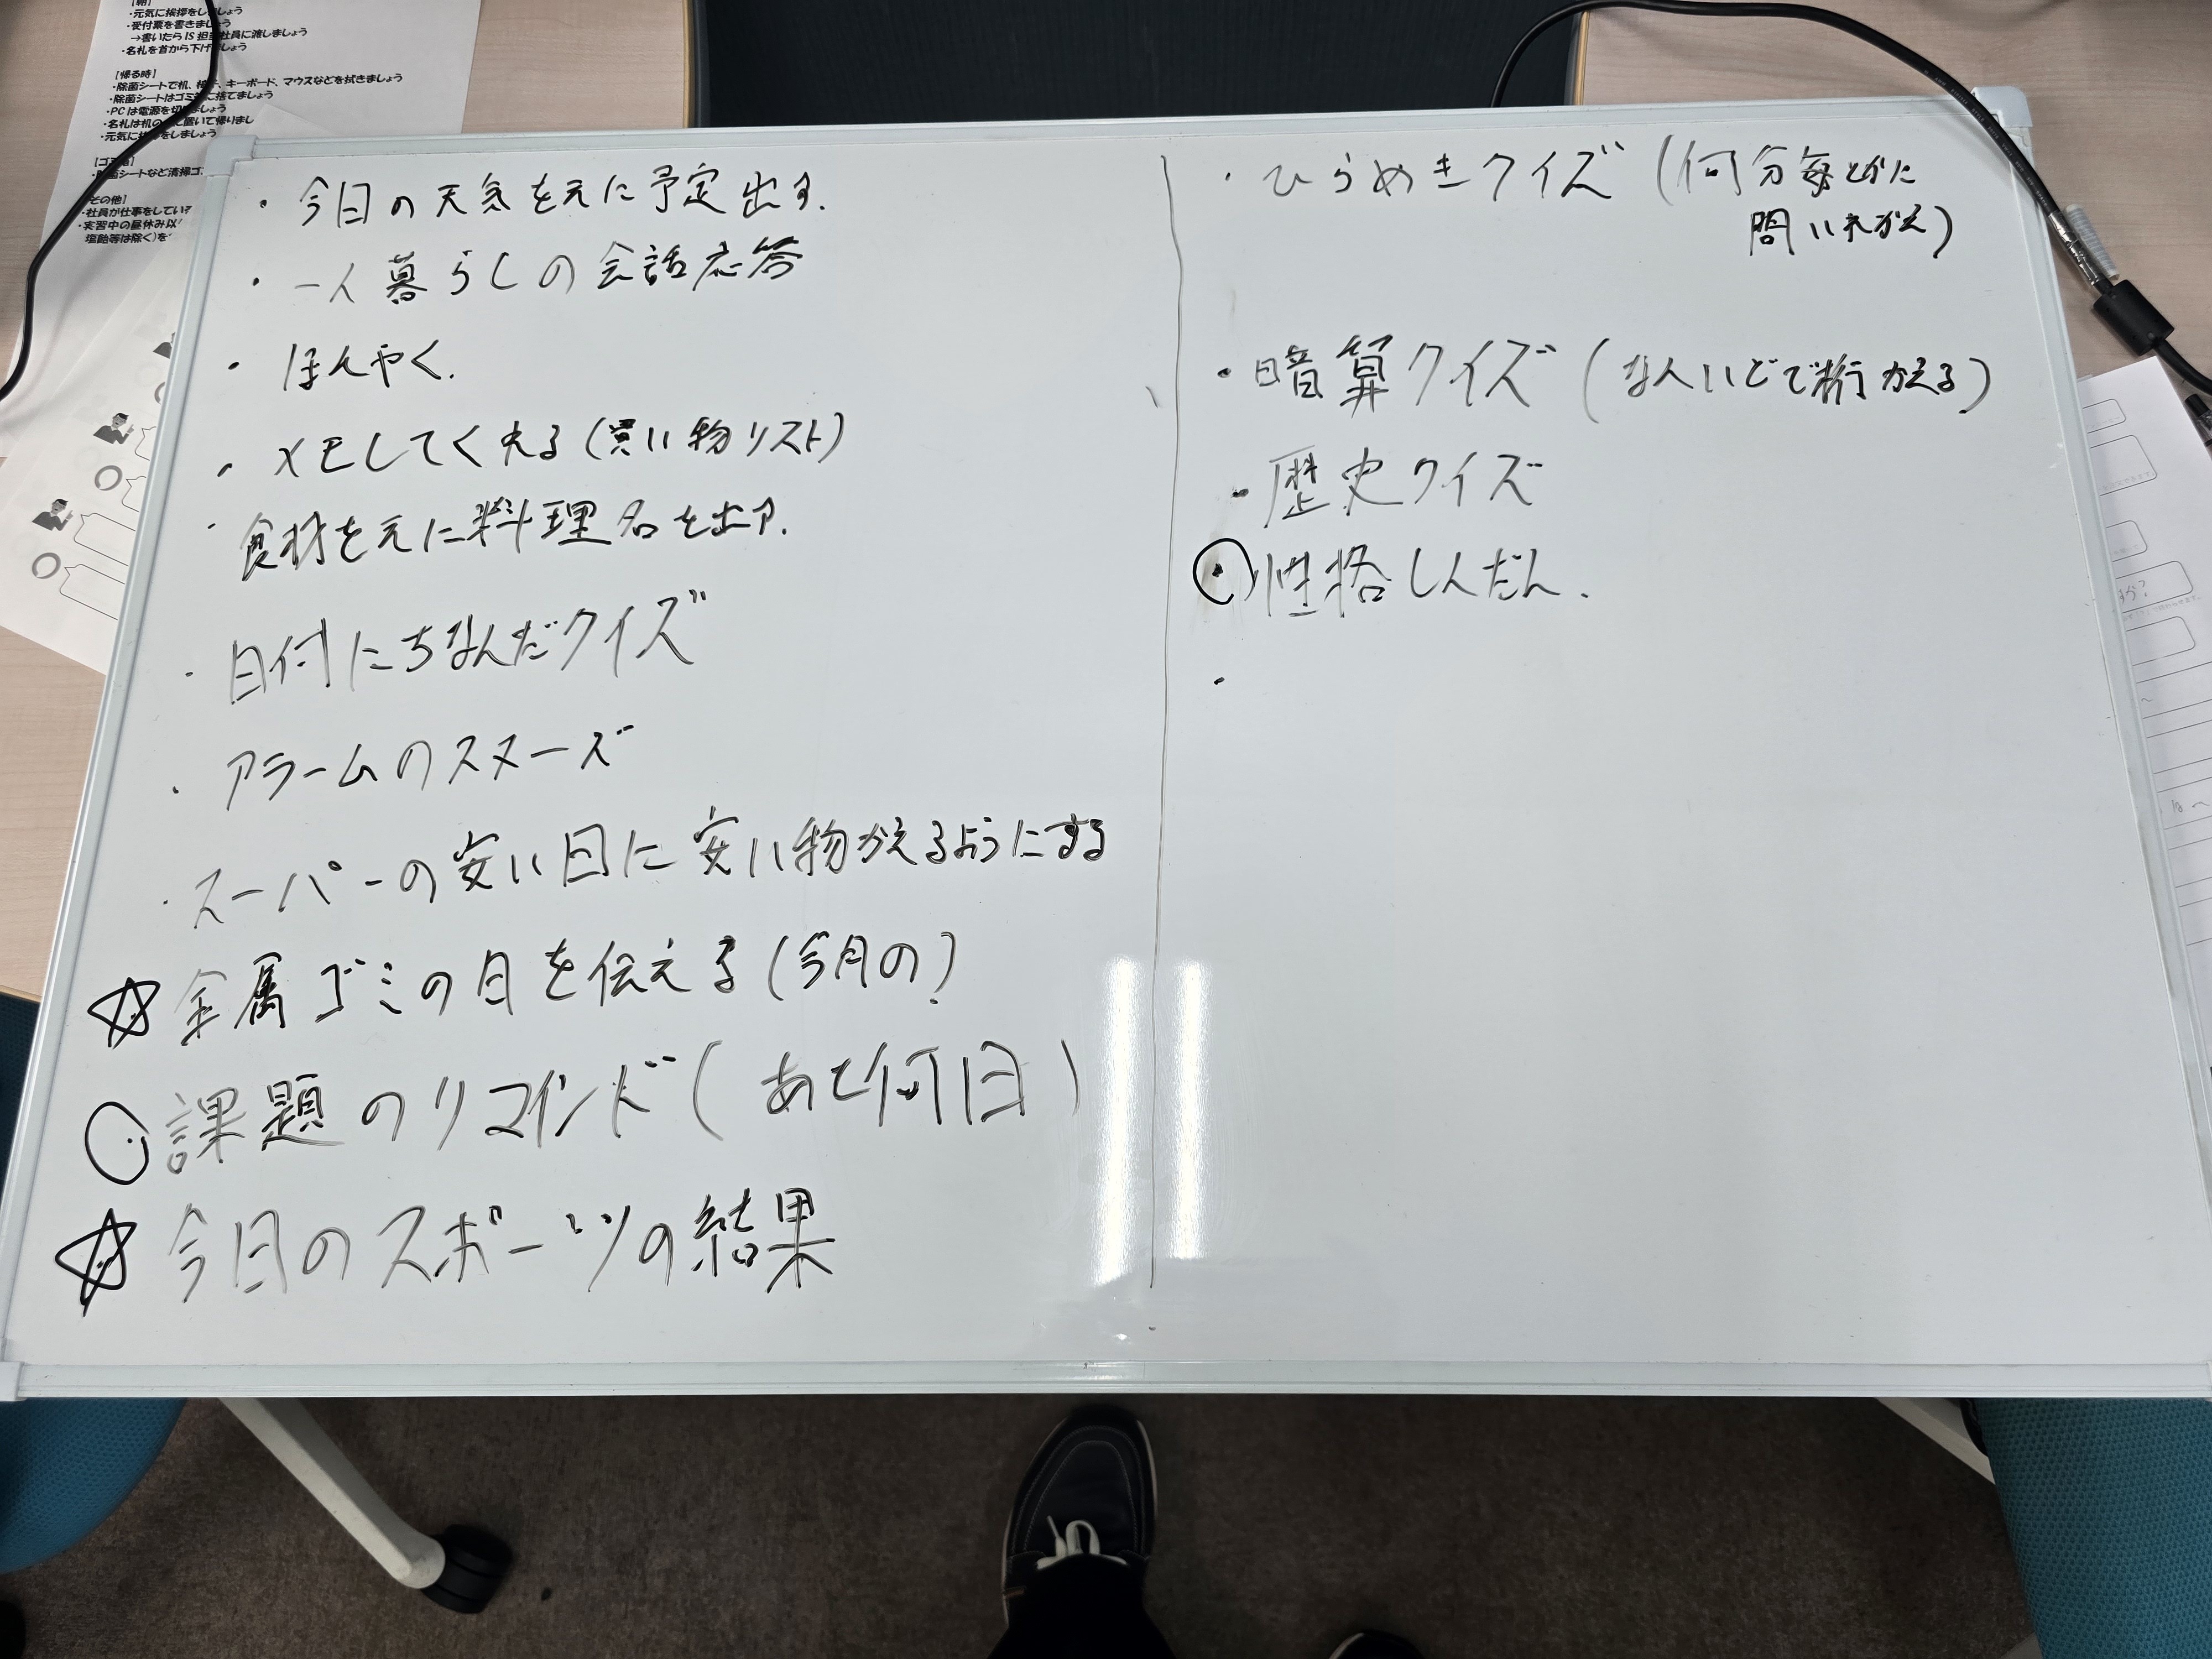 【朝】
・元気に挨拶をしましょう
・受付票を書きましょう
→書いたらIS担当社員に渡しましょう
・名札を首から下げましょう
【帰る時】
・除菌シートで机、椅子、キーボード、マウスなどを拭きましょう
・除菌シートはゴミ箱に捨てましょう
・PCは電源を切りましょう
・名札は机の 置いて帰りまし
・元気に挨拶をしましょう
【ゴミ箱】
除菌シートなど清掃ゴ
【その他】
・社員が仕事をしている
・実習中の昼休み以
塩飴等は除く)を
・今日の天気を元に予定出す.
・一人暮らしの会話応答
・ほんやく.
・メモしてくれる(買い物リスト)
・食材を元に料理名を出す.
・日付にちなんだクイズ
・アラームのスヌーズ
・スーパーの安い日に安い物かえるようにする
☆金属ゴミの日を伝える(今月の?
○課題のリマインド(あと何日)
☆今日のスポーツの結果
・ひらめきクイズ(何分毎とかに
問いれかえ)
・暗算クイズ(なんいどで桁かえる)
・歴史クイズ
・性格しんだん.
・
すか?